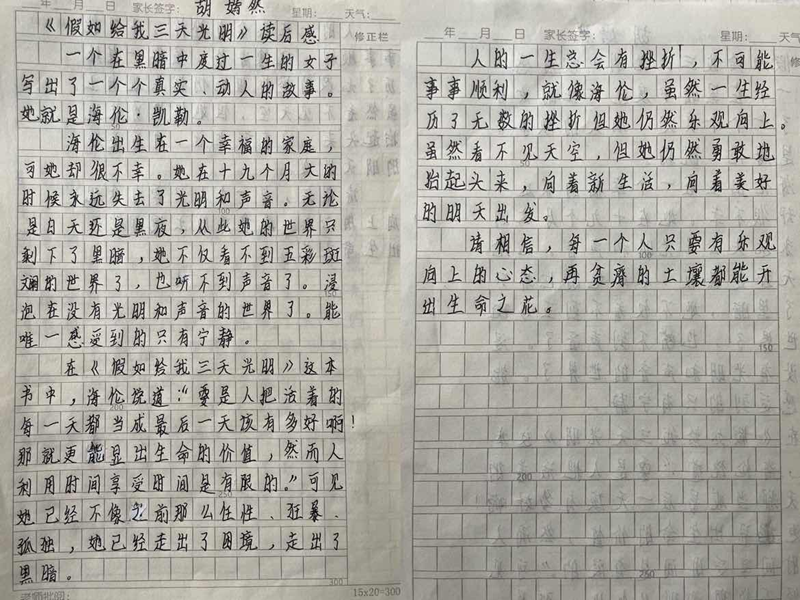 年 月 日 家长签字: 胡婧然 星期: 天气:
修正栏
《假如给我三天光明》读后感
一个在黑暗中度过一生的女子
写出了一个个真实、动人的故事。
她就是海伦·凯勒。
海伦出生在一个幸福的家庭，
可她却很不幸。她在十九个月大的
时候永远失去了光明和声音。无论
是白天还是黑夜，从此她的世界只
剩下了黑暗，她不仅看不到五彩斑
斓的世界了，也听不到声音了。浸
泡在没有光明和声音的世界了。能
唯一感受到的只有宁静。
在《假如给我三天光明》这本
书中，海伦说道:“要是人把活着的
每一天都当成最后一天该有多好啊!
那就更能显出生命的价值，然而人
利用时间享受时间是有限的。”可见
她已经不像之前那么任性、狂暴、
孤独，她已经走出了困境，走出了
黑暗。
100
200
250
300
老师批阅:
15x20=300
年 月 日 家长签字: 星期: 天气:
修正栏
人的一生总会有挫折，不可能
事事顺利，就像海伦，虽然一生经
历了无数的挫折但她仍然乐观向上。
虽然看不见天空，但她仍然勇敢地
抬起头来，向着新生活，向着美好
的明天出发。
请相信，每一个人只要有乐观
向上的心态，再贫瘠的土壤都能开
出生命之花。
100
150
200
250